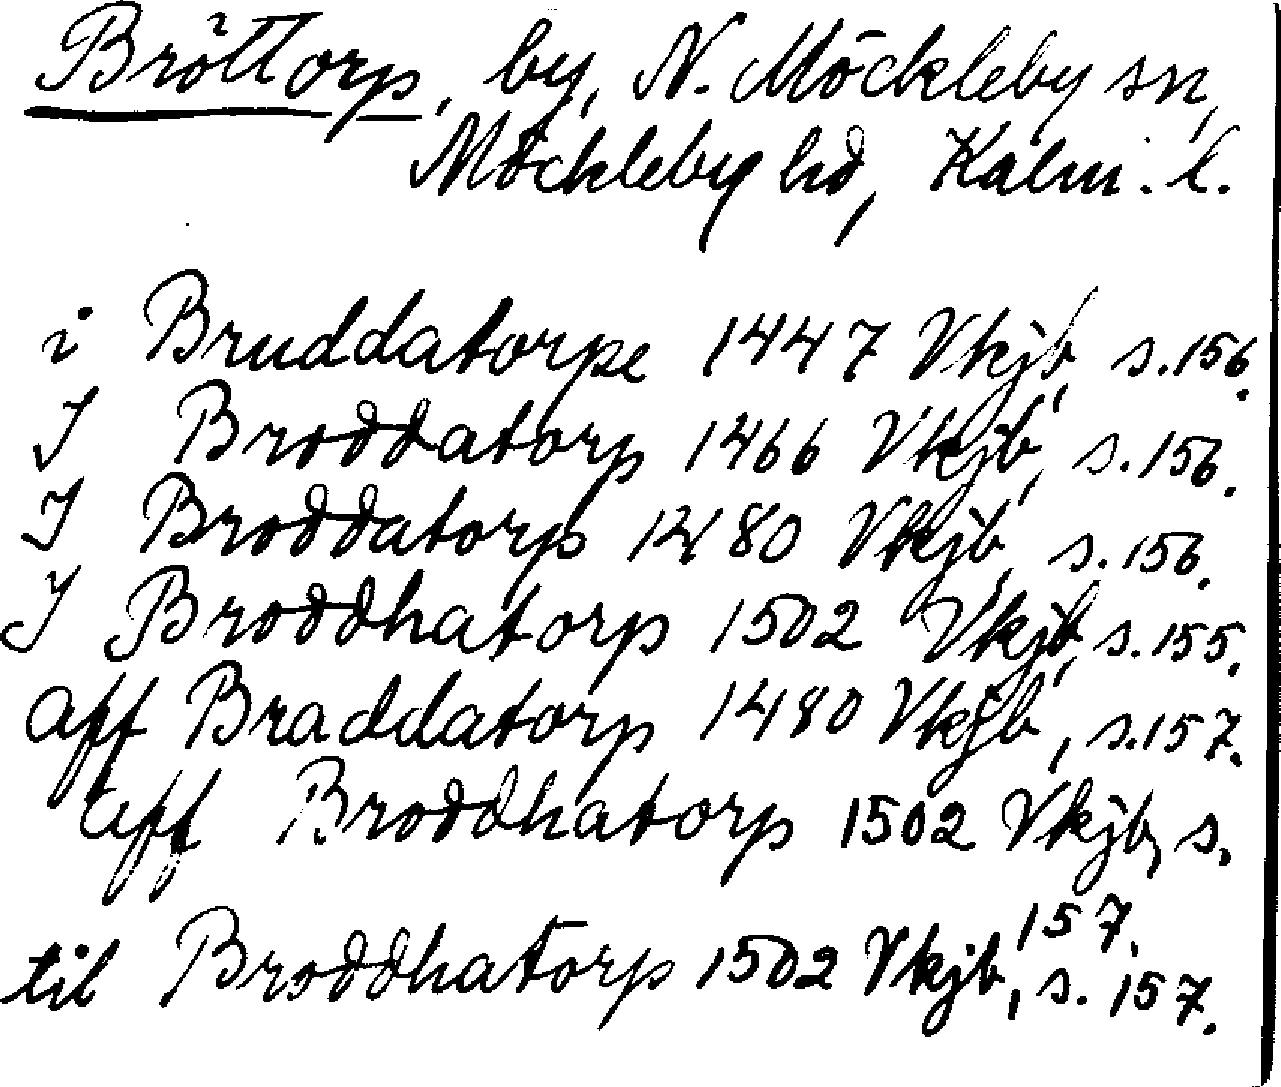 Bröttorp, by, N. Möckleby sn,
Möckleby hd, Kalm. l.
i Bruddatorpe 1447 Vkjb, s. 156.
I Broddatorp 1466 Vkjb, s. 156.
I Broddatorp 1480 Vkjb, s. 156.
I Broddhatorp 1502 Vkjb, s. 155.
aff Braddatorp 1480 Vkjb, s. 157.
aff Broddhatorp 1502 Vkjb, s.
157.
til Broddhatorp 1502 Vkjb, s. 157.